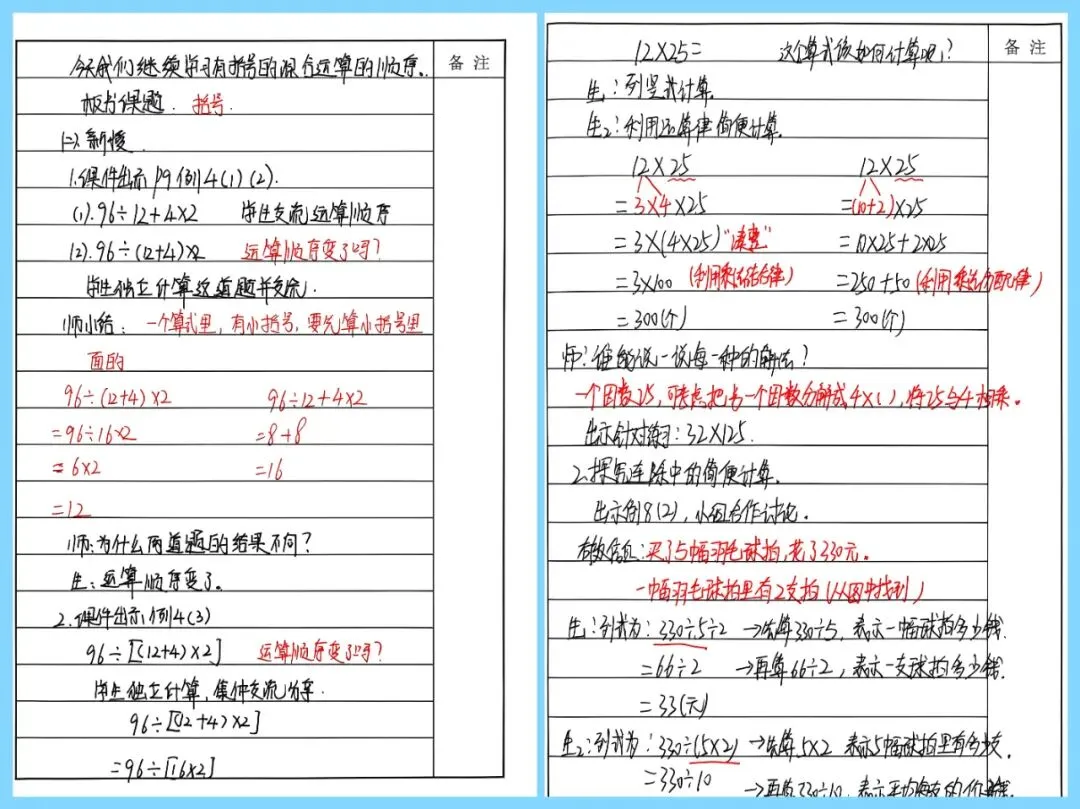 备注
今天我们继续学习有括号的混合运算的顺序。
板书课题：括号
(二)、新授
1.课件出示P9例4(1)(2).
(1).96÷12+4×2 学生交流运算顺序
(2).96÷(12+4)×2 运算顺序变了吗？
学生独立计算这道题并交流.
师小结：一个算式里，有小括号，要先算小括号里
面的
96÷(12+4)×2 96÷12+4×2
=96÷16×2 =8+8
=6×2 =16
=12
师：为什么两道题的结果不同？
生：运算顺序变了。
2.课件出示例4(3)
96÷[(12+4)×2] 运算顺序变了吗？
学生独立计算，集体交流分享.
96÷[(12+4)×2]
=96÷[16×2]
备注
12×25= 这个算式该如何计算呢？
生1：列竖式计算.
生2：利用运算律简便计算.
12×25 12×25
=3×4×25 =(10+2)×25
=3×(4×25)"凑整" =10×25+2×25
=3×100 (利用乘法结合律) =250+50(利用乘法分配律)
=300(个) =300(个)
师：谁能说一说每一种的解法？
一个因数25，可考虑把另一个因数分解成4×( )，将25与4相乘。
出示针对练习：32×125.
2.探究连除中的简便计算.
出示例8(2)，小组合作讨论。
有效信息：买了5幅羽毛球拍，花了330元。
一幅羽毛球拍里有2支拍(从图中找到)
生1：列式为：330÷5÷2 →先算330÷5，表示一幅球拍多少钱.
=66÷2 →再算66÷2，表示一支球拍多少钱.
=33(元)
生2：列式为：330÷(5×2) →先算5×2 表示5幅球拍里有多少支.
=330÷10 →再算330÷10，表示平均每支的价钱.